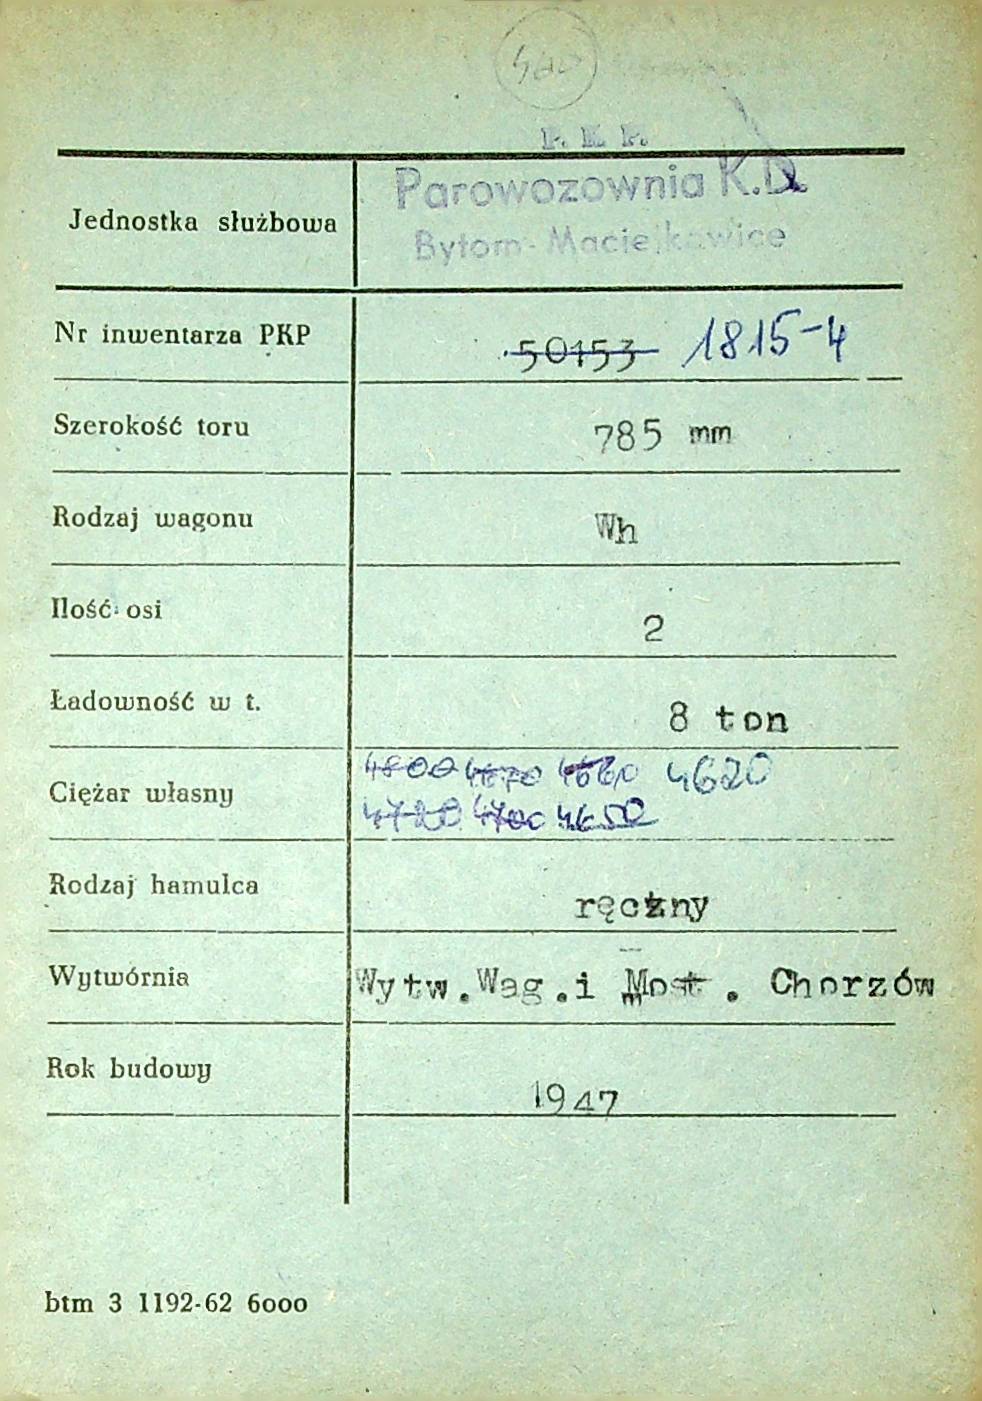 P. K. P.
Parowozownia K.D.
Jednostka służbowa
Bytom-Maciejkowice
Nr inwentarza PKP 50153 1815-4
Szerokość toru 785 mm
Rodzaj wagonu Wh
Ilość osi 2
Ładowność w t. 8 ton
4800 4670 4660 4620
Ciężar własny
4720 4700 4650
Rodzaj hamulca ręczny
Wytwórnia Wytw.Wag.i Most. Chorzów
Rok budowy 1947
btm 3 1192-62 6000